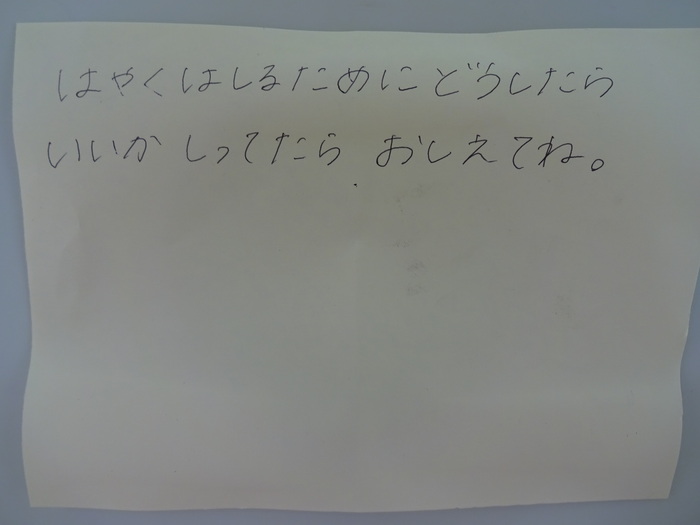 はやくはしるためにどうしたら
いいか しってたら おしえてね。